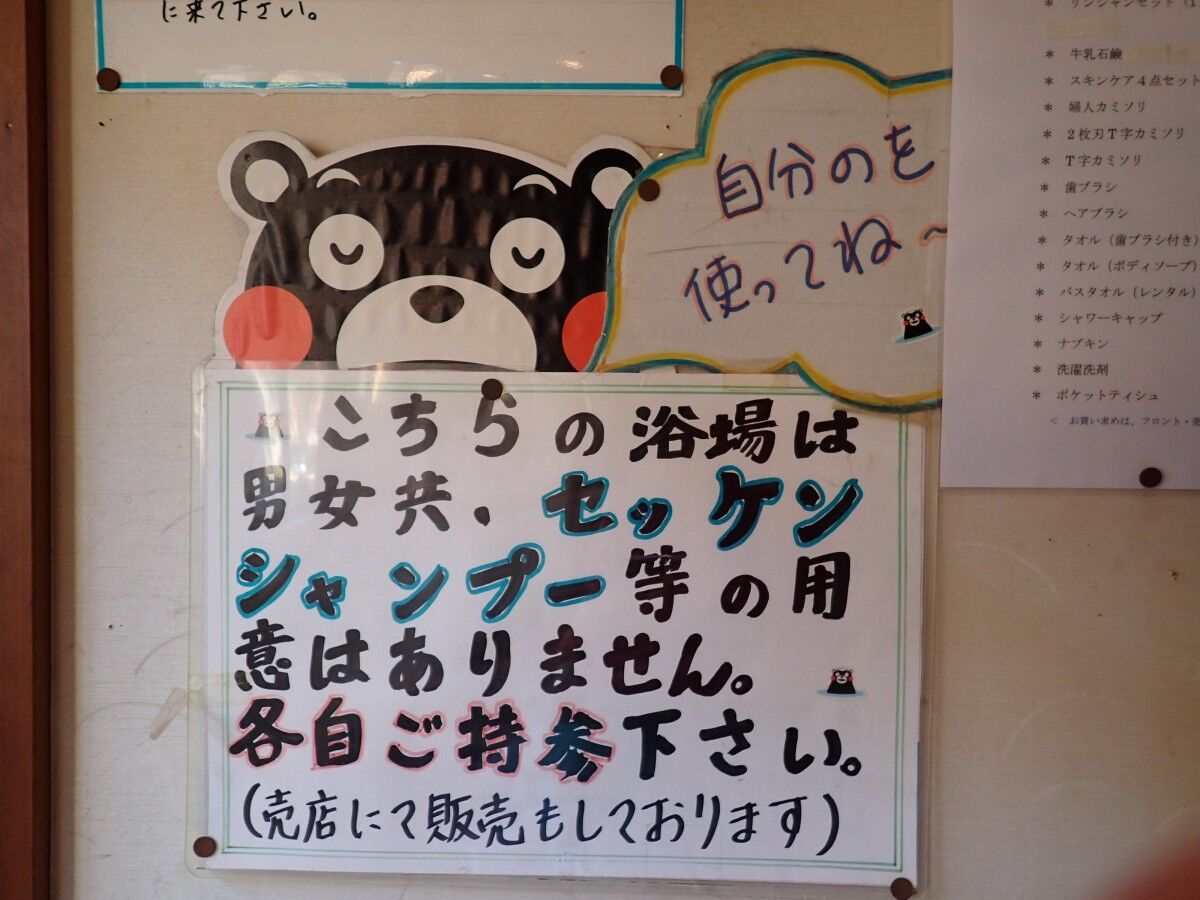 に来て下さい。
自分のを
使ってね～
こちらの浴場は
男女共、セッケン
シャンプー等の用
意はありません。
各自ご持参下さい。
(売店にて販売もしております)
* リンシャンセット
* 牛乳石鹸
* スキンケア４点セット
* 婦人カミソリ
* ２枚刃Ｔ字カミソリ
* Ｔ字カミソリ
* 歯ブラシ
* ヘアブラシ
* タオル（歯ブラシ付き）
* タオル（ボディソープ）
* バスタオル（レンタル）
* シャワーキャップ
* ナプキン
* 洗濯洗剤
* ポケットティシュ
< お買い求めは、フロント・